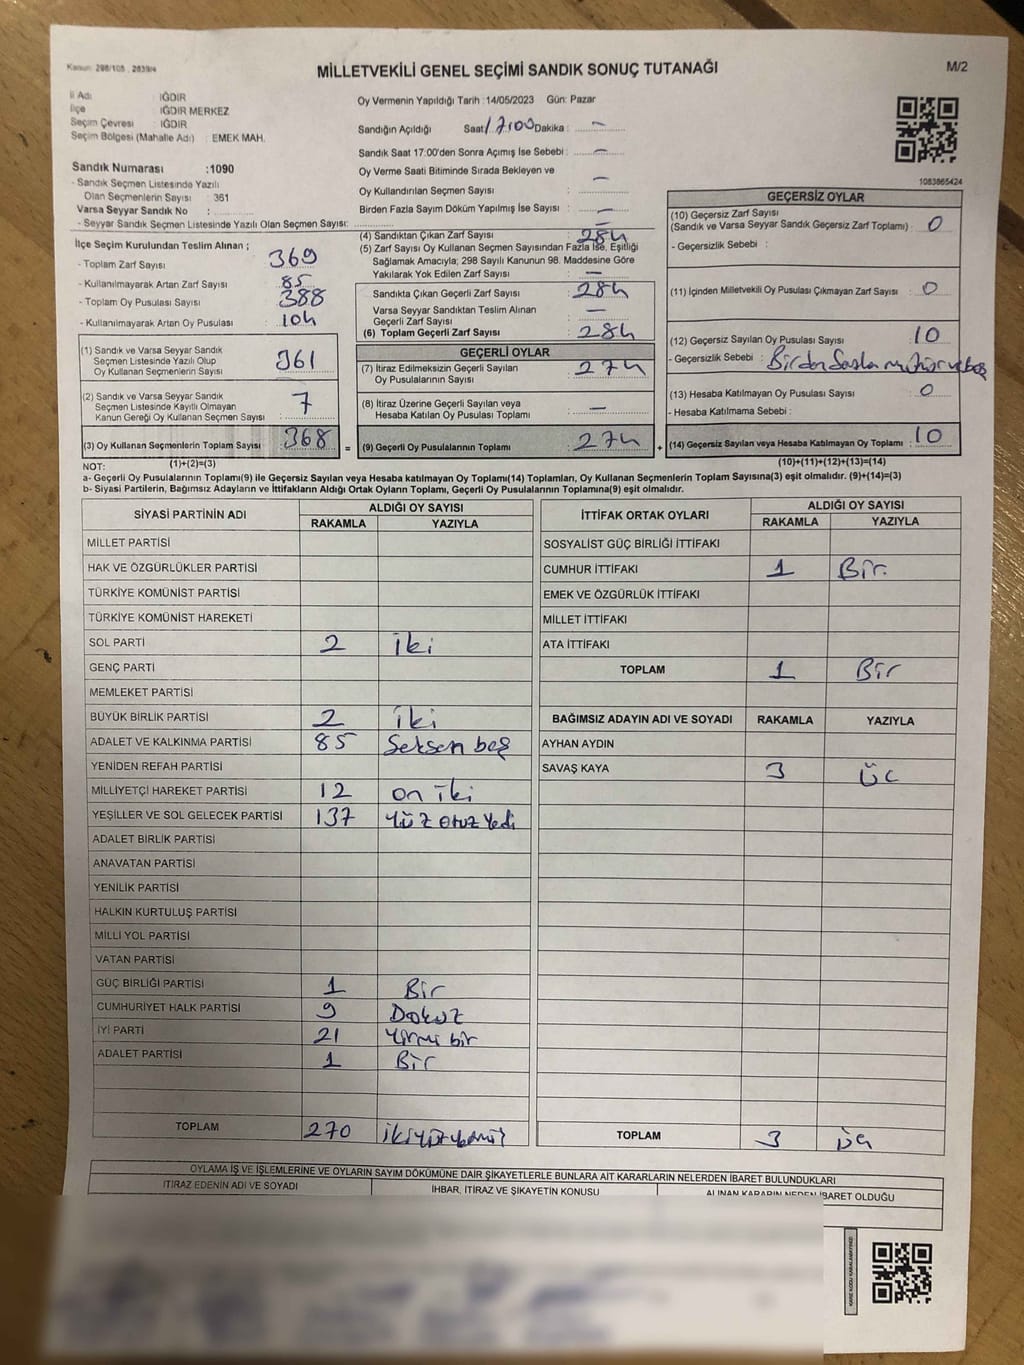 Kanun: 298/105, 2839/4
MİLLETVEKİLİ GENEL SEÇİMİ SANDIK SONUÇ TUTANAĞI
M/2
İl Adı : IĞDIR
İlçe : IĞDIR MERKEZ
Seçim Çevresi : IĞDIR
Seçim Bölgesi (Mahalle Adı) : EMEK MAH.
Sandık Numarası :1090
- Sandık Seçmen Listesinde Yazılı
Olan Seçmenlerin Sayısı : 361
Varsa Seyyar Sandık No :
- Seyyar Sandık Seçmen Listesinde Yazılı Olan Seçmen Sayısı:
İlçe Seçim Kurulundan Teslim Alınan ;
- Toplam Zarf Sayısı : 369
- Kullanılmayarak Artan Zarf Sayısı : 85
- Toplam Oy Pusulası Sayısı : 388
- Kullanılmayarak Artan Oy Pusulası : 104
(1) Sandık ve Varsa Seyyar Sandık
Seçmen Listesinde Yazılı Olup
Oy Kullanan Seçmenlerin Sayısı : 361
(2) Sandık ve Varsa Seyyar Sandık
Seçmen Listesinde Kayıtlı Olmayan
Kanun Gereği Oy Kullanan Seçmen Sayısı : 7
(3) Oy Kullanan Seçmenlerin Toplam Sayısı : 368 =
Oy Vermenin Yapıldığı Tarih : 14/05/2023 Gün: Pazar
Sandığın Açıldığı Saat 17:00 Dakika : —
Sandık Saat 17:00'den Sonra Açımış İse Sebebi : —
Oy Verme Saati Bitiminde Sırada Bekleyen ve
Oy Kullandırılan Seçmen Sayısı : —
Birden Fazla Sayım Döküm Yapılmış İse Sayısı : —
(4) Sandıktan Çıkan Zarf Sayısı : 284
(5) Zarf Sayısı Oy Kullanan Seçmen Sayısından Fazla İse, Eşitliği
Sağlamak Amacıyla; 298 Sayılı Kanunun 98. Maddesine Göre
Yakılarak Yok Edilen Zarf Sayısı : —
Sandıkta Çıkan Geçerli Zarf Sayısı : 284
Varsa Seyyar Sandıktan Teslim Alınan
Geçerli Zarf Sayısı : —
(6) Toplam Geçerli Zarf Sayısı : 284
GEÇERLİ OYLAR
(7) İtiraz Edilmeksizin Geçerli Sayılan
Oy Pusulalarının Sayısı : 274
(8) İtiraz Üzerine Geçerli Sayılan veya
Hesaba Katılan Oy Pusulası Toplamı : —
(9) Geçerli Oy Pusulalarının Toplamı : 274 +
1083865424
GEÇERSİZ OYLAR
(10) Geçersiz Zarf Sayısı
(Sandık ve Varsa Seyyar Sandık Geçersiz Zarf Toplamı) : 0
- Geçersizlik Sebebi :
(11) İçinden Milletvekili Oy Pusulası Çıkmayan Zarf Sayısı : 0
(12) Geçersiz Sayılan Oy Pusulası Sayısı : 10
- Geçersizlik Sebebi : Birden fazla mühür ve boş
(13) Hesaba Katılmayan Oy Pusulası Sayısı : 0
- Hesaba Katılmama Sebebi :
(14) Geçersiz Sayılan veya Hesaba Katılmayan Oy Toplamı : 10
NOT: (1)+(2)=(3) (10)+(11)+(12)+(13)=(14)
a- Geçerli Oy Pusulalarının Toplamı(9) ile Geçersiz Sayılan veya Hesaba katılmayan Oy Toplamı(14) Toplamları, Oy Kullanan Seçmenlerin Toplam Sayısına(3) eşit olmalıdır. (9)+(14)=(3)
b- Siyasi Partilerin, Bağımsız Adayların ve İttifakların Aldığı Ortak Oyların Toplamı, Geçerli Oy Pusulalarının Toplamına(9) eşit olmalıdır.
SİYASİ PARTİNİN ADI ALDIĞI OY SAYISI
RAKAMLA YAZIYLA
MİLLET PARTİSİ
HAK VE ÖZGÜRLÜKLER PARTİSİ
TÜRKİYE KOMÜNİST PARTİSİ
TÜRKİYE KOMÜNİST HAREKETİ
SOL PARTİ 2 iki
GENÇ PARTİ
MEMLEKET PARTİSİ
BÜYÜK BİRLİK PARTİSİ 2 iki
ADALET VE KALKINMA PARTİSİ 85 Seksen beş
YENİDEN REFAH PARTİSİ
MİLLİYETÇİ HAREKET PARTİSİ 12 on iki
YEŞİLLER VE SOL GELECEK PARTİSİ 137 Yüz otuz Yedi
ADALET BİRLİK PARTİSİ
ANAVATAN PARTİSİ
YENİLİK PARTİSİ
HALKIN KURTULUŞ PARTİSİ
MİLLİ YOL PARTİSİ
VATAN PARTİSİ
GÜÇ BİRLİĞİ PARTİSİ 1 Bir
CUMHURİYET HALK PARTİSİ 9 Dokuz
İYİ PARTİ 21 Yirmi bir
ADALET PARTİSİ 1 Bir
TOPLAM 270 ikiyüzyetmiş
İTTİFAK ORTAK OYLARI ALDIĞI OY SAYISI
RAKAMLA YAZIYLA
SOSYALİST GÜÇ BİRLİĞİ İTTİFAKI
CUMHUR İTTİFAKI 1 Bir.
EMEK VE ÖZGÜRLÜK İTTİFAKI
MİLLET İTTİFAKI
ATA İTTİFAKI
TOPLAM 1 Bir
BAĞIMSIZ ADAYIN ADI VE SOYADI RAKAMLA YAZIYLA
AYHAN AYDIN
SAVAŞ KAYA 3 Üç
TOPLAM 3 üç
OYLAMA İŞ VE İŞLEMLERİNE VE OYLARIN SAYIM DÖKÜMÜNE DAİR ŞİKAYETLERLE BUNLARA AİT KARARLARIN NELERDEN İBARET BULUNDUKLARI
İTİRAZ EDENİN ADI VE SOYADI İHBAR, İTİRAZ VE ŞİKAYETİN KONUSU ALINAN KARARIN NEDEN İBARET OLDUĞU